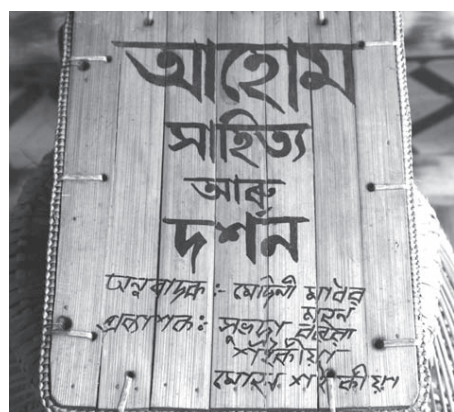 আহোম
সাহিত্য
আৰু
দৰ্শন
অনুবাদক :- মেদিনী মাধৱ
মহন
প্ৰকাশক : সুভদ্ৰা
শইকীয়া
মোহন শইকীয়া